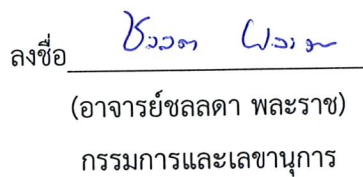 ลงชื่อ ชลลดา
(อาจารย์ชลลดา พละราช)
กรรมการและเลขานุการ